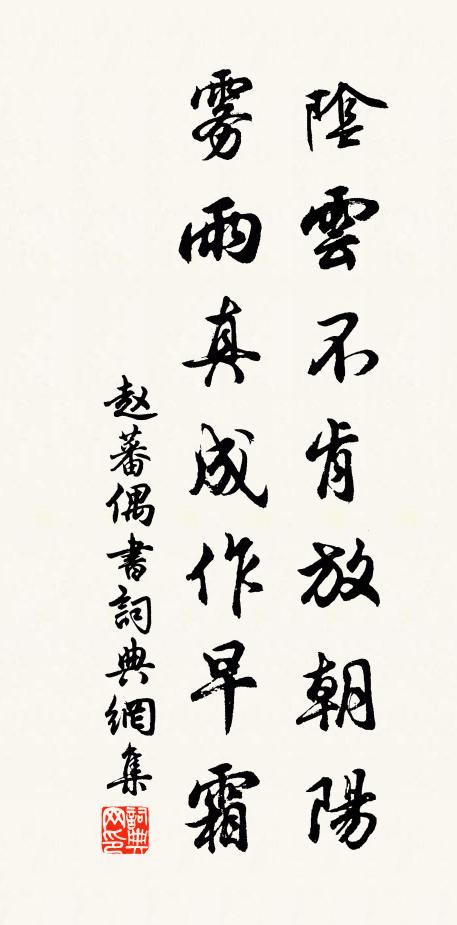 陰雲不肯放朝陽
雾雨真成作早霜
赵蕃偶書詞典網集
詞典网印